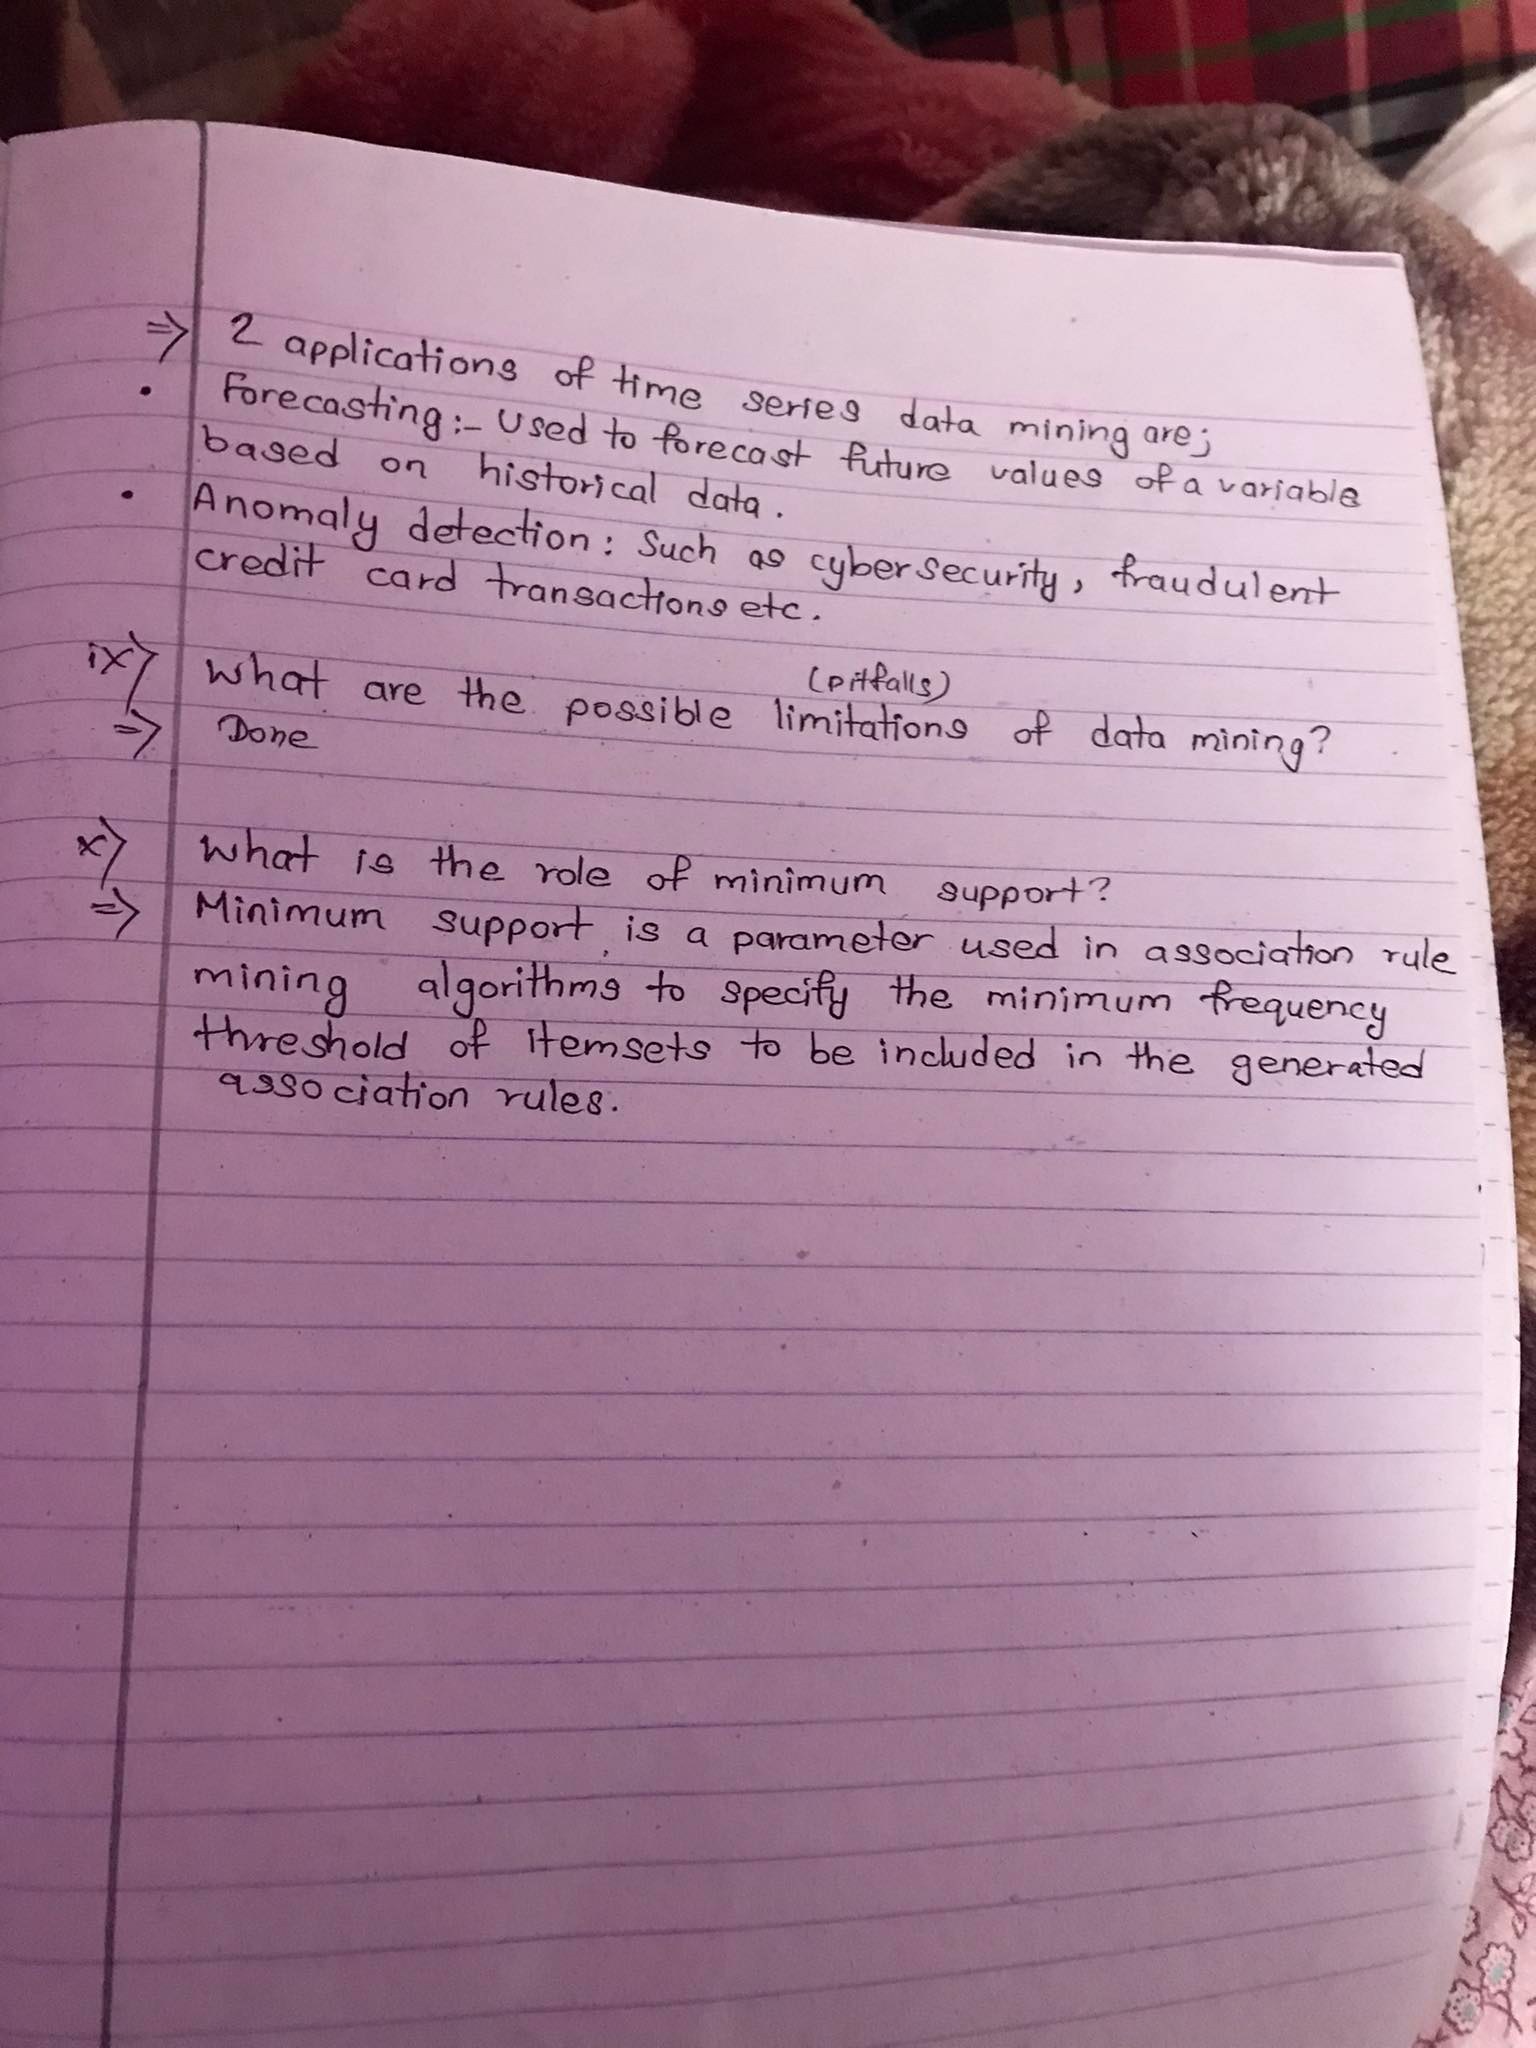 ⇒ 2 applications of time series data mining are;
• Forecasting:- Used to forecast future values of a variable
based on historical data.
• Anomaly detection: Such as cybersecurity, fraudulent
credit card transactions etc.
ix) What are the possible limitations (pitfalls) of data mining?
⇒ Done
x) What is the role of minimum support?
⇒ Minimum support is a parameter used in association rule
mining algorithms to specify the minimum frequency
threshold of itemsets to be included in the generated
association rules.